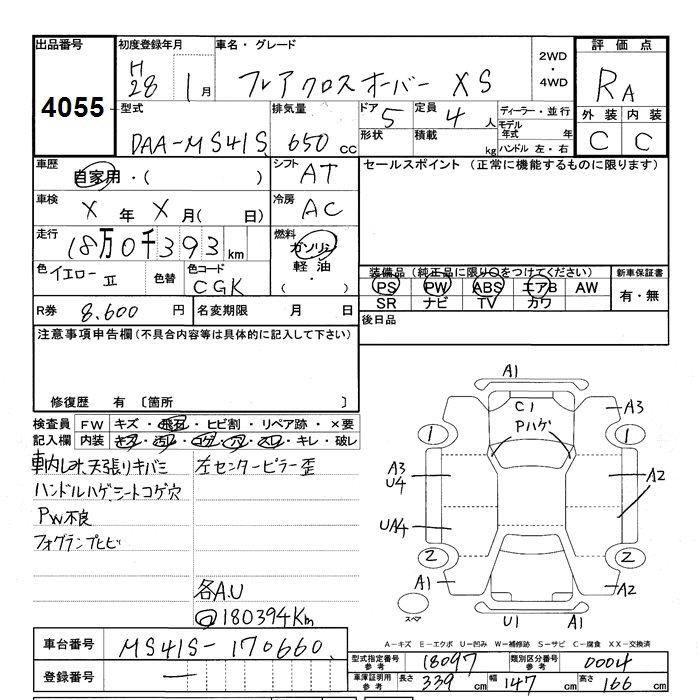 出品番号
4055
初度登録年月
H28 1月
車名・グレード
フレアクロスオーバー XS
2WD・4WD
評価点
RA
外装 内装
C C
型式
DAA-MS41S
排気量
650 cc
ドア 5
形状
定員 4人
積載 kg
ディーラー・並行
モデル年式 年
ハンドル 左・右
車歴
自家用・( )
シフト AT
車検
X年 X月( 日)
冷房 AC
走行
18万0千393km
燃料
ガソリン
軽油・
色 イエローII
色替
色コード CGK
R券 8,600円
名変期限 月 日
セールスポイント (正常に機能するものに限ります)
装備品 (純正品に限り○をつけてください)
PS PW ABS エアB AW
SR ナビ TV カワ
新車保証書
有・無
後日品
注意事項申告欄(不具合内容等は具体的に記入して下さい)
修復歴 有 〔箇所 〕
検査員記入欄
FW キズ・飛石・ヒビ割・リペア跡・×要
内装 キズ・汚レ・コゲ・穴・スレ・キレ・破レ
車内しみ天張りキバミ
ハンドルハゲ、シートコゲ穴
PW不良
フォグランプヒビ
左センターピラー歪
各A.U
180394Km
A1
C1
Pハゲ
A3
1 1
A3
U4
A2
UA4
2 2
A1
A2
スペア
U1 A1
A-キズ E-エクボ U-凹み W-補修跡 S-サビ C-腐食 XX-交換済
車台番号 MS41S-170660
登録番号 —
型式指定番号 参考 18097
類別区分番号 参考 0004
車庫証明用 参考 長さ 339cm 幅 147cm 高さ 166cm